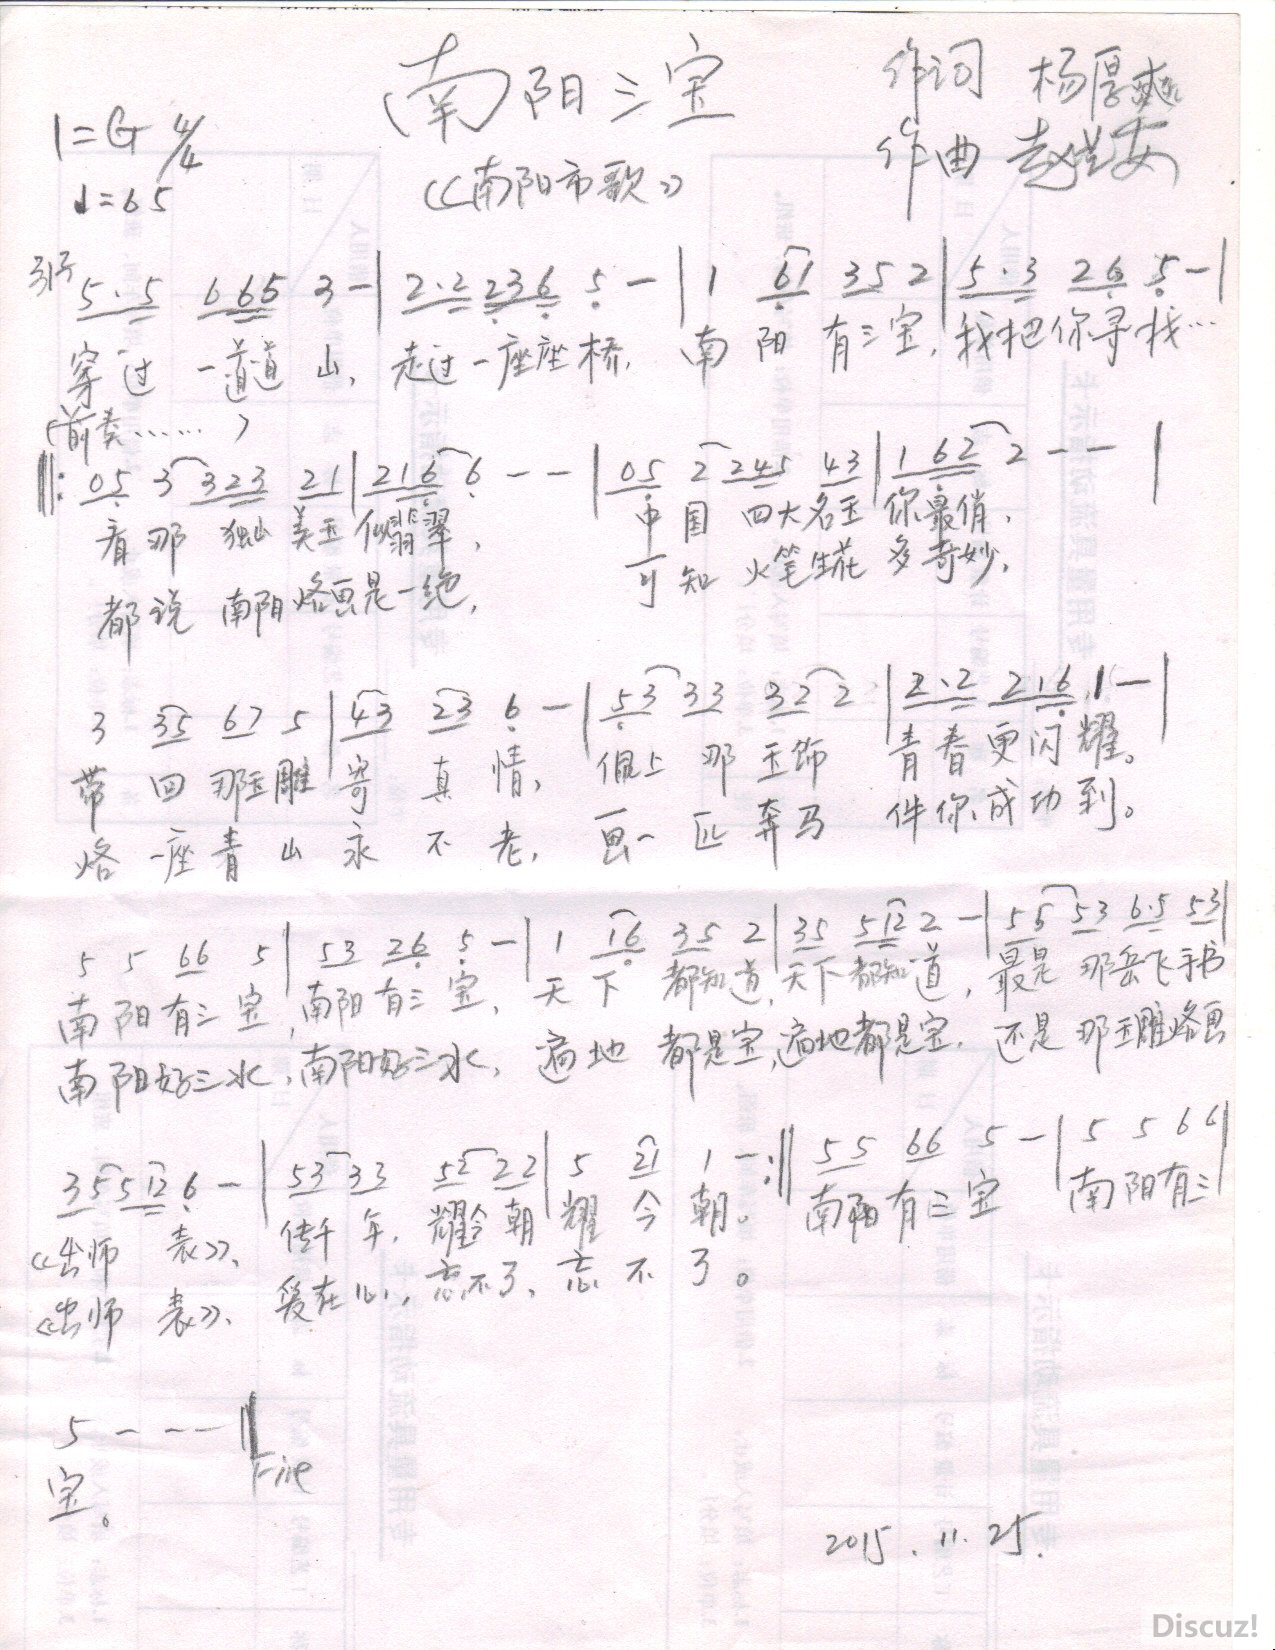 南阳三宝
作词 杨厚
1=G 4/4
作曲 赵
♩=65
《南阳市歌》
引子 5·5 665 3 - | 2·2 236 5 - | 1 61 35 2 | 5·3 26 5 - |
穿过一道道山, 走过一座座桥, 南阳有三宝, 我把你寻找…
(前奏……)
‖: 05 3 323 21 | 216 6 - - | 05 2 245 43 | 1 62 2 - - |
看那独山美玉似翡翠, 中国四大名玉你最俏,
都说南阳烙画是一绝, 可知火笔生花多奇妙,
3 35 67 5 | 43 23 6 - | 53 33 32 2 | 2·2 216 1 - |
带回那玉雕寄真情, 佩上那玉饰青春更闪耀。
烙一座青山永不老, 画一匹奔马伴你成功到。
5 5 66 5 | 53 26 5 - | 1 16 35 2 | 35 512 2 - | 55 53 6·5 53 |
南阳有三宝, 南阳有三宝, 天下都知道, 天下都知道, 最是那岳飞手书
南阳好三水, 南阳好三水, 遍地都是宝, 遍地都是宝, 还是那玉雕烙画
35 512 6 - | 53 33 52 22 | 5 21 1 - :‖ 55 66 5 - | 5 5 6 6 |
《出师表》、传千年, 耀今朝耀今朝。南阳有三宝 南阳有三
《出师表》、爱在心, 忘不了、忘不了。
5 - - - ‖
宝。 Fine
2015.11.25.
Discuz!